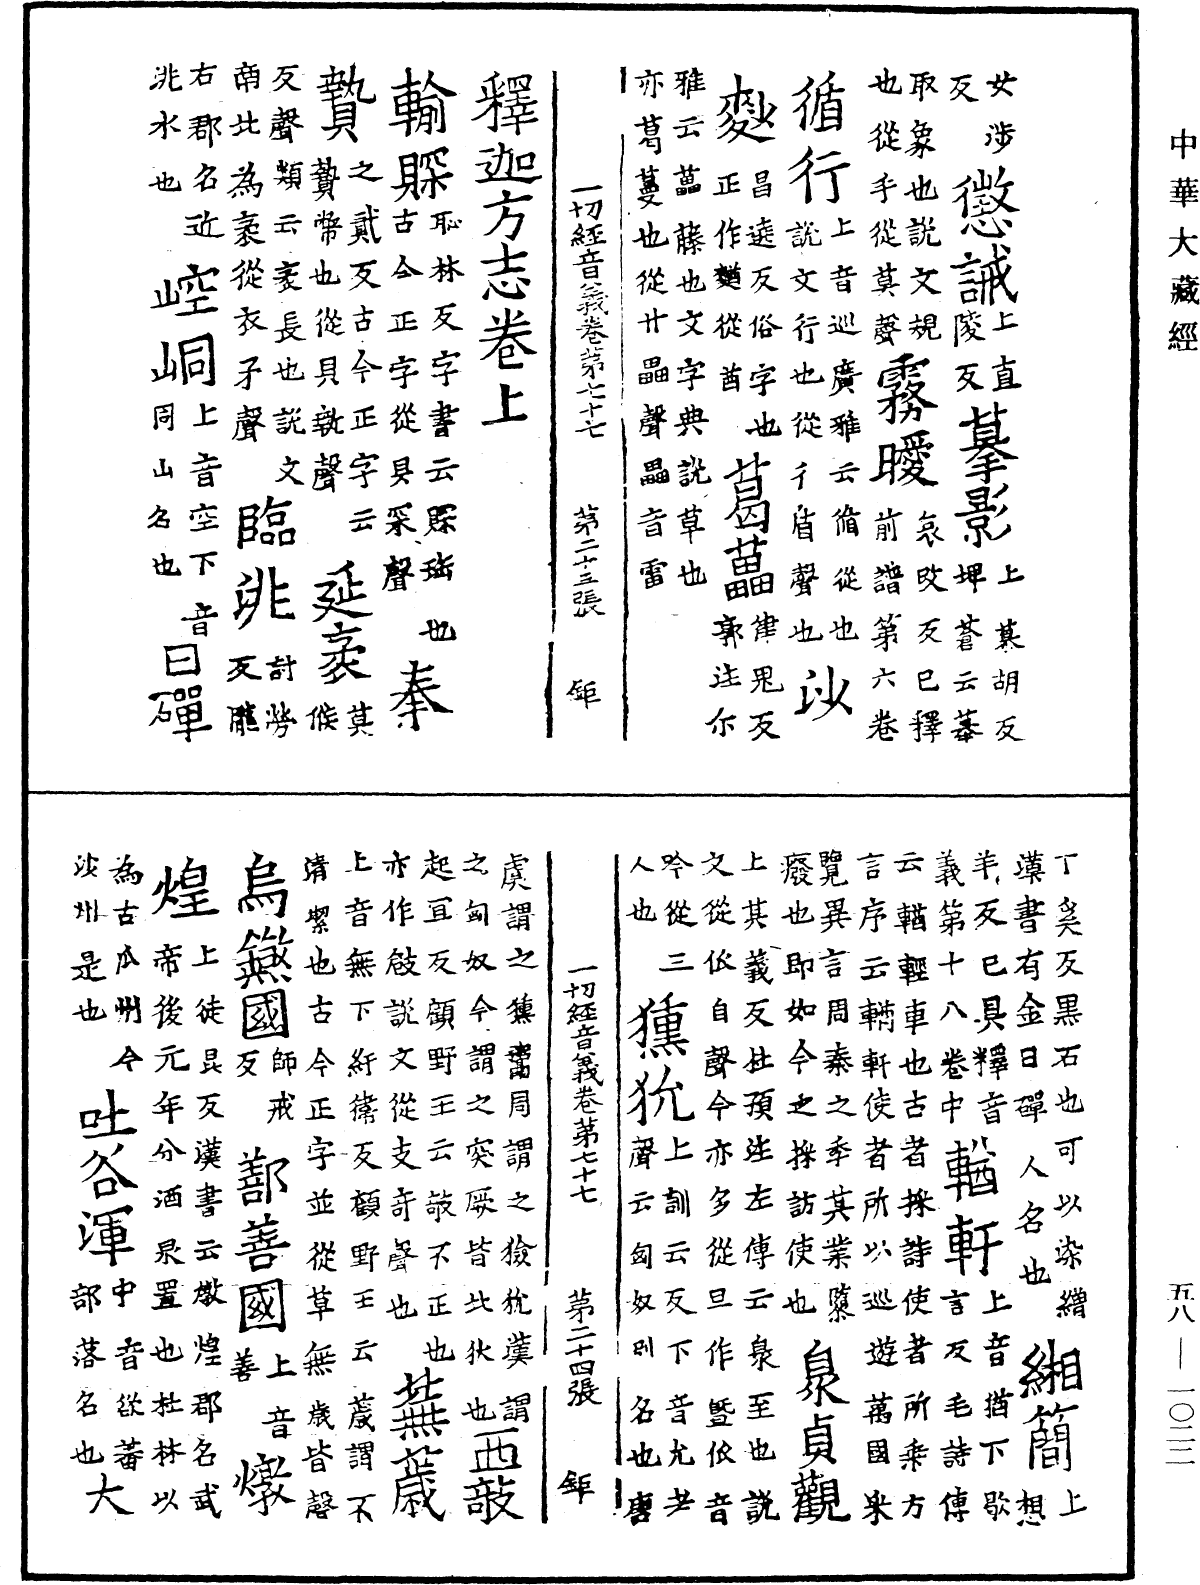 中華大藏經
女涉反 懲誡 上直陵反 摹影 上慕胡反埤蒼云摹
取象也說文規也從手從莫聲 霧曖 哀改反已釋前譜第六卷
循行 上音巡廣雅云循從也說文行也從彳盾聲也 沙
麨 昌遠反俗字也正作䵌從酋 葛藟 律鬼反郭注尔
雅云藟藤也文字典說草也亦葛蔓也從廿畾聲畾音雷
一切經音義卷第七十七 第二十三張 鉅
釋迦方志卷上
輸賝 恥林反字書云賝珤也古今正字從貝罙聲 奉
贄 之貳反古今正字云贄幣也從貝執聲 延袤 莫候
反聲類云袤長也說文南北為袤從衣矛聲 臨洮 討勞反隴
右郡名近洮水也 崆峒 上音空下音同山名也 日磾
丁奚反黒石也可以染繒漢書有金日磾人名也 緗簡 上想
羊反已具釋音義第十八卷中 輶軒 上音猶下歇言反毛詩傳
云輶輕車也古者採詩使者所乘方言序云輶軒使者所以巡遊萬國采
覽異言周秦之季其業隳癈也即如今之採訪使也 臮貞觀
上其義反杜預注左傳云臮至也說文從㐺自聲今亦多從旦作曁㐺音
吟從三人也 獯狁 上訓云反下音尤老聲云匈奴別名也唐
一切經音義卷第七十七 第二十四張 鉅
虞謂之獯鬻周謂之獫狁漢謂之匈奴今謂之突厥皆北狄也 西敧
起冝反顧野王云敧不正也亦作攲說文從支奇聲也 蕪薉
上音無下紆衛反顧野王云薉謂不清潔也古今正字並從草無歲皆聲
烏鎩國 師戒反 鄯善國 上音善 燉
煌 上徒昆反漢書云燉煌郡名武帝後元年分酒泉置也杜林以
為古瓜州今沙州是也 吐谷渾 中音欲蕃部落名也 大
五八—一〇二二